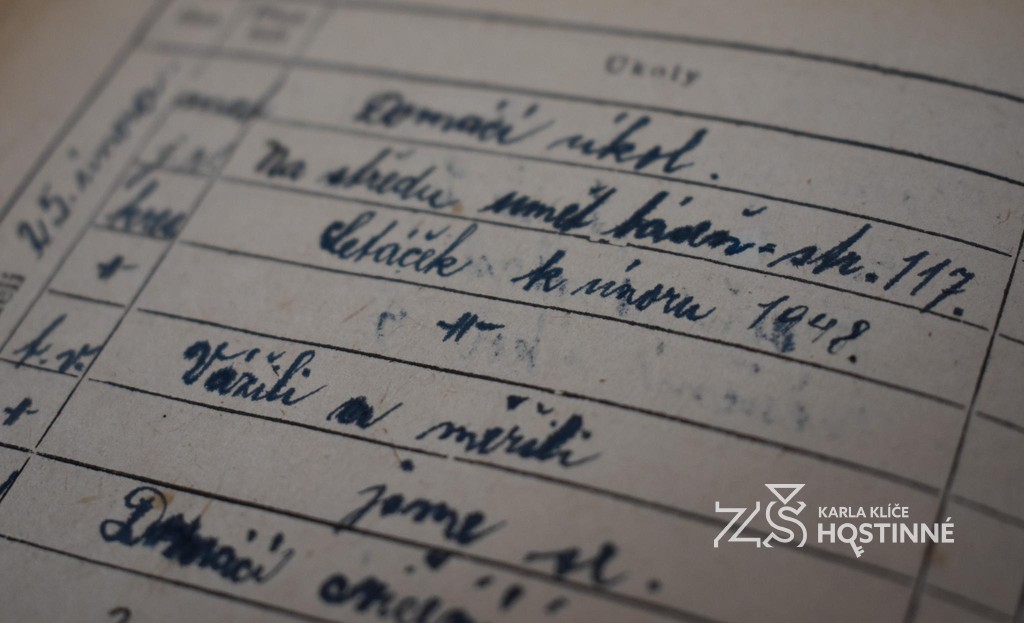 Úkoly
25. února
Domácí úkol.
Na středu umět báseň - str. 117.
kres Letáček k únoru 1948.
t. v. Vážili a měřili
jsme se.
Domácí
ZŠ KARLA KLÍČE
HOSTINNÉ